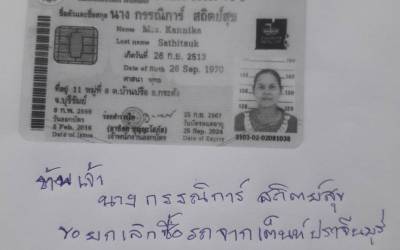 ชื่อตัวและชื่อสกุล นาง กรรณิการ์ สถิตย์สุข
Name Mrs. Kannika
Last name Sathitsuk
เกิดวันที่ 26 ก.ย. 2513
Date of Birth 26 Sep. 1970
ศาสนา พุทธ
ที่อยู่ 11 หมู่ที่ 8 ต.บ้านปรือ อ.กระสัง
จ.บุรีรัมย์
8 ก.พ. 2559
วันออกบัตร
8 Feb. 2016
Date of Issue
เจ้าพนักงานออกบัตร
25 ก.ย. 2567
วันบัตรหมดอายุ
25 Sep. 2024
Date of Expiry
0103-02-02081038
ข้าพเจ้า
นาง กรรณิการ์ สถิตย์สุข
ขอยกเลิกซื้อรถจากเต็นท์ปราจีนบุรี